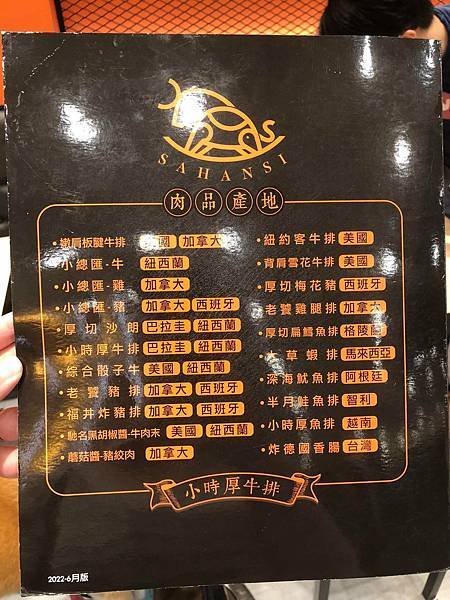 SAHANSI
肉品產地
•嫩肩板腱牛排 美國 加拿大
•小總匯-牛 紐西蘭
•小總匯-雞 加拿大
•小總匯-豬 加拿大 西班牙
•厚切沙朗 巴拉圭 紐西蘭
•小時厚牛排 巴拉圭 紐西蘭
•綜合骰子牛 美國 紐西蘭
•老饕豬排 加拿大 西班牙
•福井炸豬排 加拿大 西班牙
•馳名黑胡椒醬-牛肉末 美國 紐西蘭
•蘑菇醬-豬絞肉 加拿大
•紐約客牛排 美國
•背肩雪花牛排 美國
•厚切梅花豬 西班牙
•老饕雞腿排 加拿大
•厚切扁鱈魚排 格陵蘭
•大草蝦排 馬來西亞
•深海魷魚排 阿根廷
•半月鮭魚排 智利
•小時厚魚排 越南
•炸德國香腸 台灣
小時厚牛排
2022-6月版